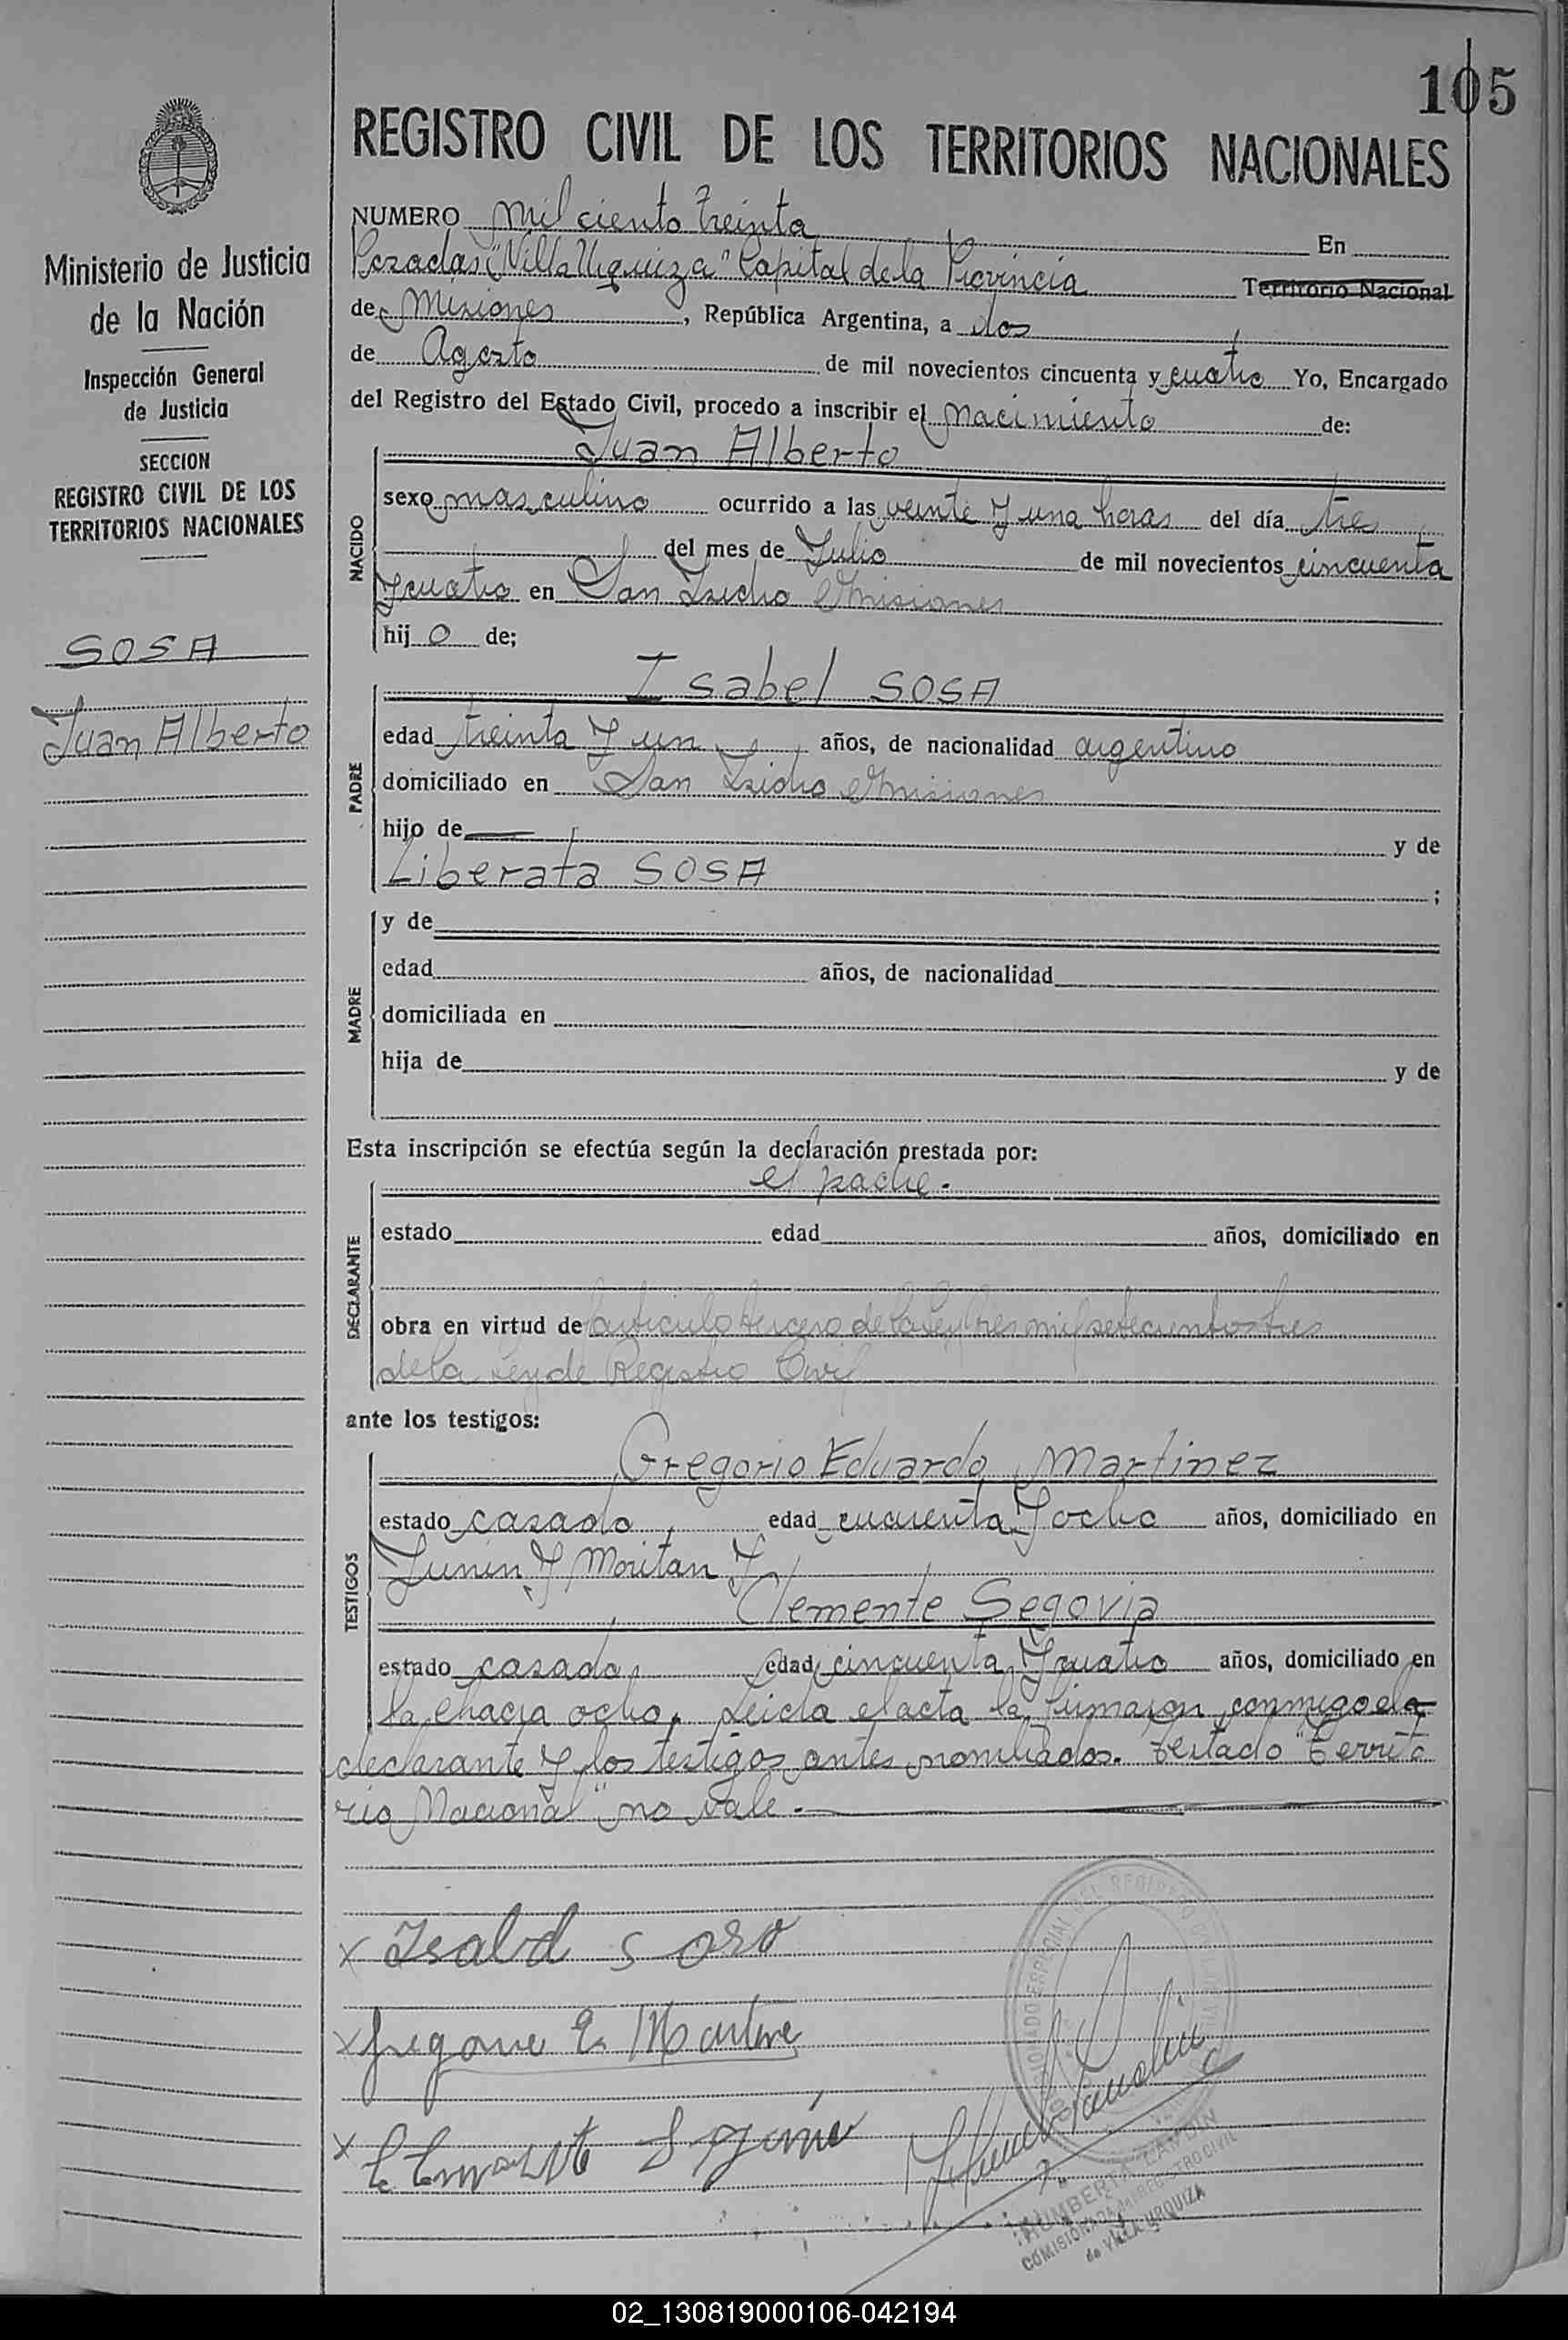 105
REGISTRO CIVIL DE LOS TERRITORIOS NACIONALES
Ministerio de Justicia
de la Nación
Inspección General
de Justicia
SECCION
REGISTRO CIVIL DE LOS
TERRITORIOS NACIONALES
SOSA
Juan Alberto
NUMERO Mil ciento treinta En
Posadas "Villa Urquiza" Capital de la Provincia Territorio Nacional
de Misiones, República Argentina, a dos
de Agosto de mil novecientos cincuenta y cuatro Yo, Encargado
del Registro del Estado Civil, procedo a inscribir el nacimiento de:
NACIDO
Juan Alberto
sexo masculino ocurrido a las veinte y una horas del día tres
del mes de Julio de mil novecientos cincuenta
y cuatro en San Isidro Misiones
hijo de;
PADRE
Isabel SOSA
edad treinta y un años, de nacionalidad argentino
domiciliado en San Isidro Misiones
hijo de y de
Liberata SOSA ;
MADRE
y de
edad años, de nacionalidad
domiciliada en
hija de y de
Esta inscripción se efectúa según la declaración prestada por:
DECLARANTE
el padre.
estado edad años, domiciliado en
obra en virtud de articulo tercero de la ley tres mil setecientos tres
de la ley de Registro Civil
ante los testigos:
TESTIGOS
Gregorio Eduardo Martinez
estado casado, edad cuarenta y ocho años, domiciliado en
Junin y Moritan y
Clemente Segovia
estado casado, edad cincuenta y cuatro años, domiciliado en
la chacra ocho. Leida el acta la firmaron conmigo el
declarante y los testigos antes nombrados. Testado "Territo
rio Nacional" no vale.
x Isabel Soso
x Gregorio E. Martine
x Clemente Segovia
HUMBERTO
COMISIONADA del REGISTRO CIVIL
de VILLA URQUIZA
02_130819000106-042194